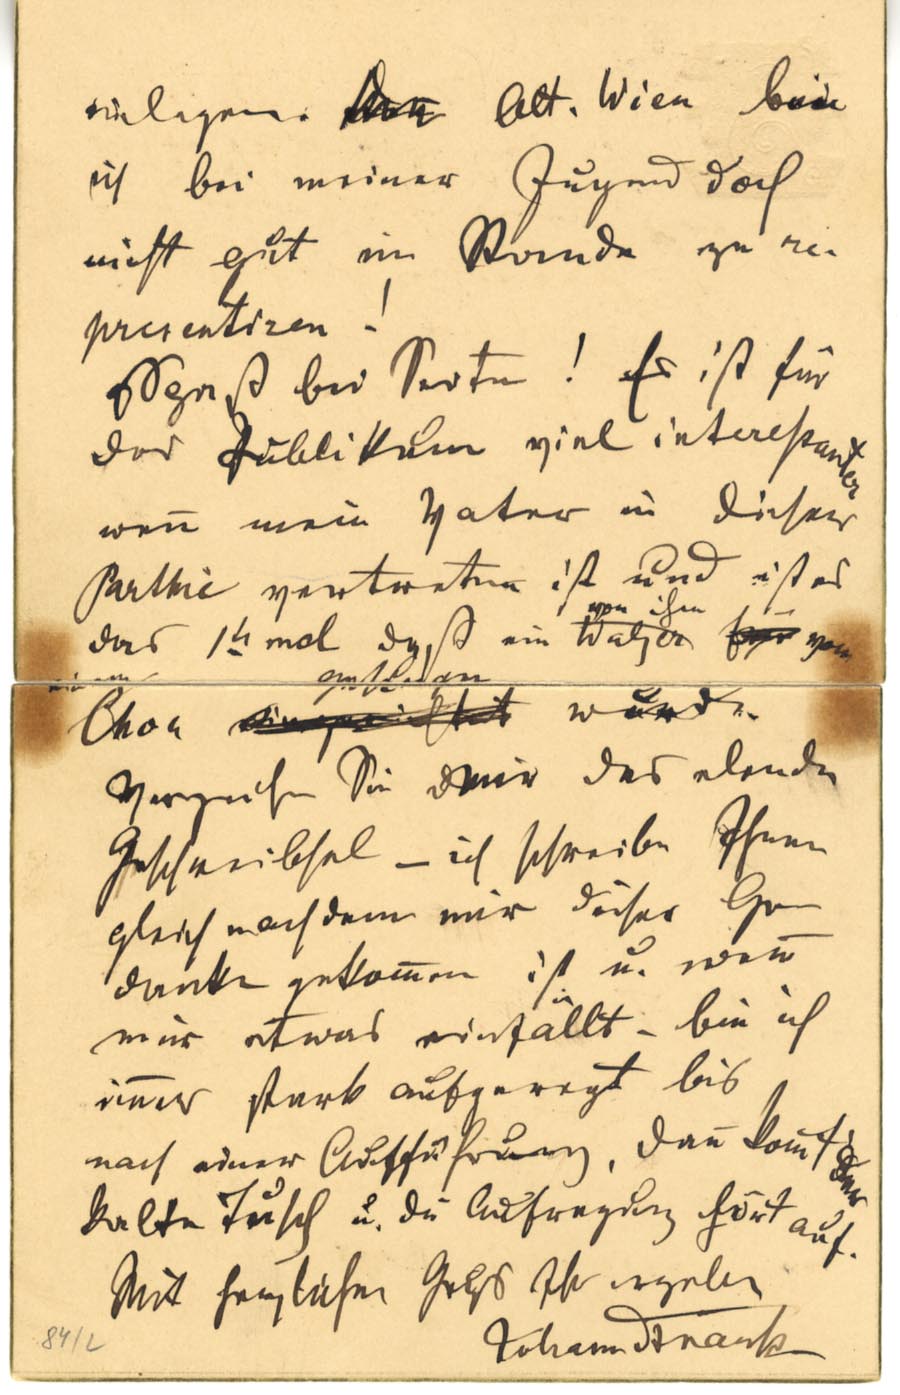 einlegen. Alt. Wien bin
ich bei meiner Jugend doch
nicht gut im Stande zu re-
presentiren!
Spaß bei Seite! Es ist für
das Publikum viel interessanter
wenn mein Vater in dieser
Parthie vertreten ist und ist es
das 1te mal daß ein Walzer von ihm von
einem
Chor gesungen wurde.
Verzeihen Sie mir das elende
Geschreibsel – ich schreibe Ihnen
gleich nachdem mir dieser Ge-
danke gekommen ist u. wenn
mir etwas einfällt – bin ich
immer stark aufgeregt bis
nach einer Aufführung, dann kommt der
kalte Tusch u. die Aufregung hört auf.
Mit herzlichen Gruß Ihr ergeben
Johann Strauss
84/2